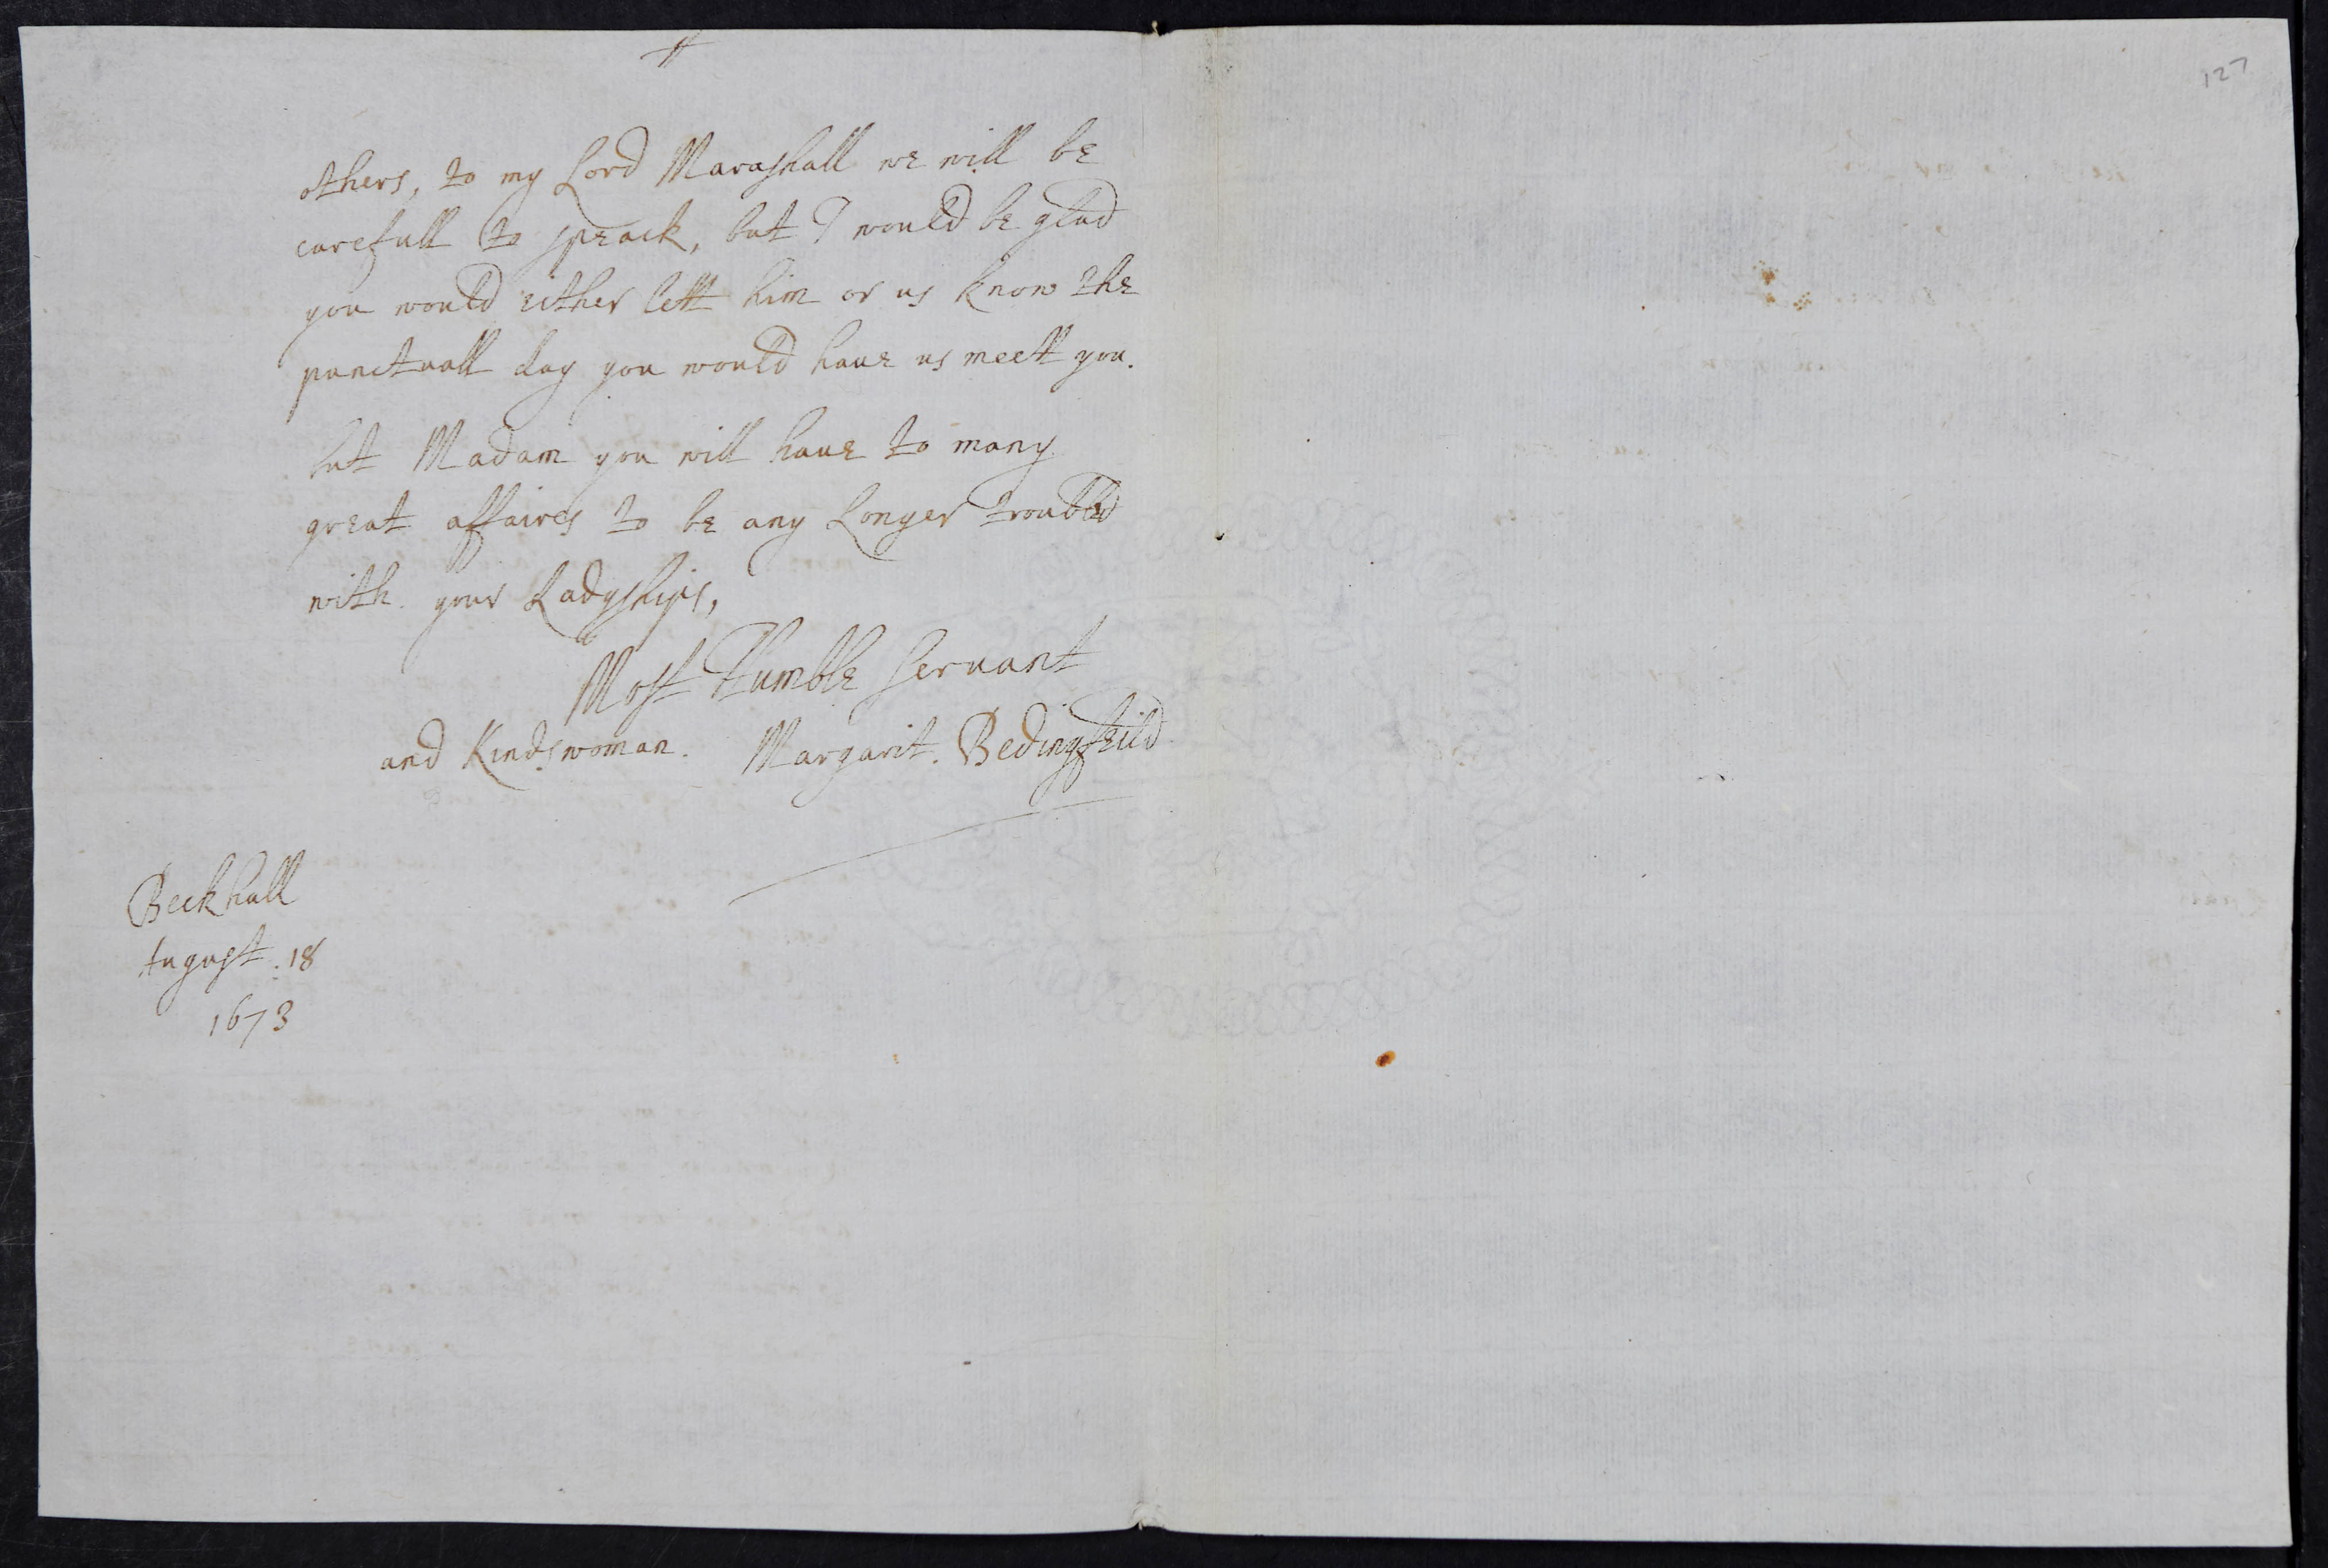 127
others, to my Lord Marashall we will be
carefull to speack, but I would be glad
you would either lett him or us know the
punctuall day you would haue us meett you.
but Madam you will haue to many
great affaires to be any Longer troubled
with your Ladyships,
Most Humble seruant
and Kindswoman. Margarit. Bedingfeild
Beckhall
August. 18
1673